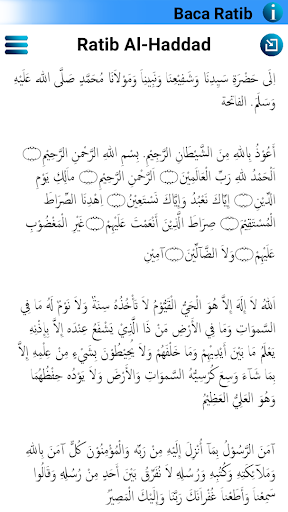 Baca Ratib
Ratib Al-Haddad
اِلَى حَضْرَةِ سَيِّدِنَا وَشَفِيْعِنَا وَنَبِيِّنَا وَمَوْلَانَا مُحَمَّدٍ صَلَّى اللّٰه عَلَيْهِ
وَسَلَّمَ. الفَاتحة
أَعُوْذُ بِاللهِ مِنَ الشَّيْطَانِ الرَّجِيْمِ. بِسْمِ اللهِ الرَّحْمٰنِ الرَّحِيْمِ۝
اَلْحَمْدُ للهِ رَبِّ الْعَالَمِيْنَ۝ اَلرَّحْمٰنِ الرَّحِيْمِ۝ مالِكِ يَوْمِ
الدِّيْنِ۝ إِيَّاكَ نَعْبُدُ وَإِيَّاكَ نَسْتَعِيْنُ۝ اِهْدِنَا الصِّرَاطَ
الْمُسْتَقِيْمَ۝ صِرَاطَ الَّذِيْنَ أَنْعَمْتَ عَلَيْهِمْ۝ غَيْرِ الْمَغْضُوْبِ
عَلَيْهِمْ۝ وَلاَ الضَّآلِّيْنَ۝ آمِيْن
اَللهُ لاَ إِلَهَ إِلاَّ هُوَ الْحَيُّ الْقَيُّوْمُ لاَ تَأْخُذُهُ سِنَةٌ وَلاَ نَوْمٌ لَهُ مَا فِي
السَّموَاتِ وَمَا فِي الأَرْضِ مَنْ ذَا الَّذِيْ يَشْفَعُ عِنْدَه إِلاَّ بِإِذْنِهِ
يَعْلَمُ مَا بَيْنَ أَيْدِيْهِمْ وَمَا خَلْفَهُمْ وَلاَ يُحِيْطُوْنَ بِشَيْءٍ مِنْ عِلْمِهِ إِلاَّ
بِمَا شَآءَ وَسِعَ كُرْسِيُّهُ السَّموَاتِ وَالأَرْضَ وَلاَ يَودُه حِفْظُهُمَا
وَهُوَ العَلِيُّ العَظِيْمُ
آمَنَ الرَّسُوْلُ بِمَآ أُنْزِلَ إِلَيْهِ مِنْ رَبِّهِ وَالْمُؤْمِنُوْنَ كُلٌّ آمَنَ بِاللهِ
وَمَلآئِكَتِهِ وَكُتُبِهِ وَرُسُلِهِ لاَ نُفَرِّقُ بَيْنَ أَحَدٍ مِنْ رُسُلِهِ وَقَالُوا
سَمِعْنَا وَأَطَعْنَا غُفْرَانَكَ رَبَّنَا وَإِلَيْكَ الْمَصِيْرُ